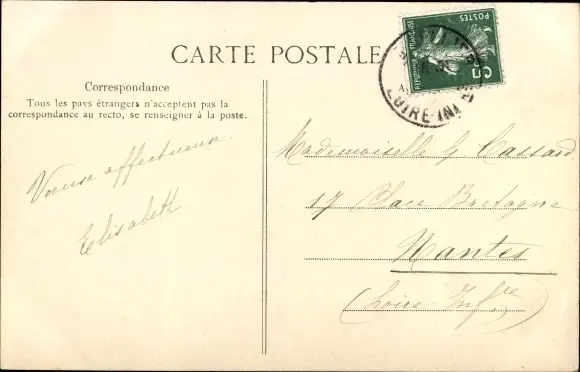 CARTE POSTALE
Correspondance
Tous les pays étrangers n'acceptent pas la
correspondance au recto, se renseigner à la poste.
Voeux affectueux
Elisabeth
POSTES
REPUBLIQUE FRANÇAISE
5c
LOIRE-INF
Mademoiselle G Cassard
17 Place Bretagne
Nantes
(Loire Infre)